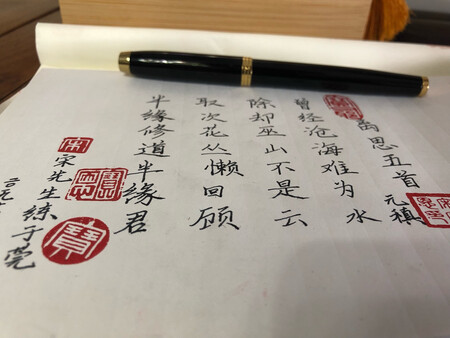 离思五首
元稹
曾经沧海难为水
除却巫山不是云
取次花丛懒回顾
半緣修道半緣君
宋先生练于莞
宋
寶